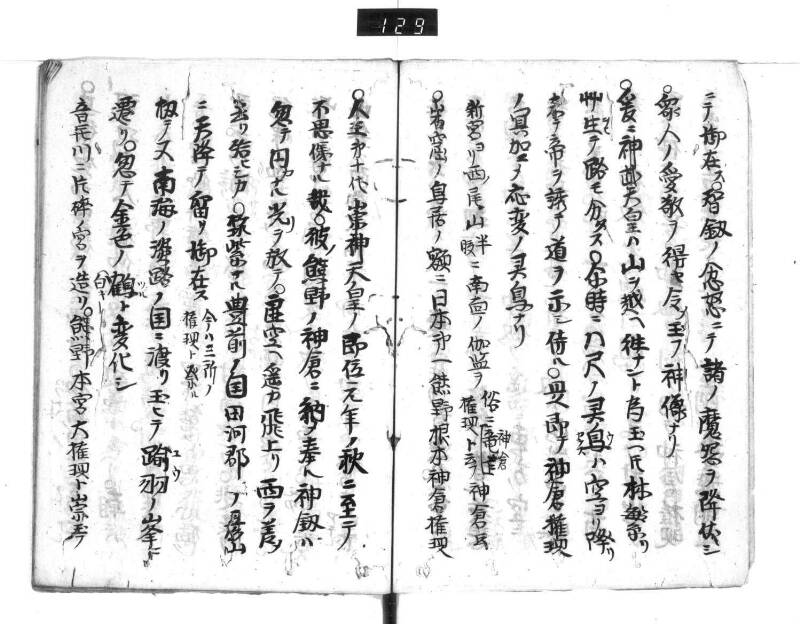 129
ニテ御在ス○智釼ノ念怒ニテ諸ノ魔怨ヲ降伏シ
衆人ノ愛敬ヲ得セ令玉フ神像ナリ
○爰ニ神武天皇ハ山ヲ越ヘ往ナント為玉ヘ𪜈林繁リ
艸生テ路モ分タス○尓時ニ八尺ノ霊烏ハ空ヨリ降リ
来テ帝ヲ誘テ道ヲ示シ侍ル○是即チ神倉権現
ノ冥加ニテ応変ノ霊烏ナリ
新宮ヨリ西ノ尾山半腹ニ南面ノ伽藍ヲ俗ニ竜蓮権現ト云神倉
ノ鳥居ノ額ニ日本第一熊野根本神倉権現
○人王第十代崇神天皇ノ即位元年ノ秋ニ至ニテ
不思儀ナル哉○彼ノ熊野ノ神倉ニ納メ奉ル神釼ハ
忽チ円ナル光リヲ放テ○虚空ヘ遥カ飛上リ西ヲ差メ
去リ給ヒシカ○筑紫ナル豊前ノ国田河郡ノ
ニ天降テノ留リ御在ス今ハ三所ノ権現ト祭ル
ス南海ノ淡路ノ国ニ渡リ玉ヒテ鶴羽ノ峯ニ
遷リ○忽チ金色ノ鶴ト変化シ
音無川ニ片碑ノ宮ヲ造リ○熊野本宮大権現ト崇奉